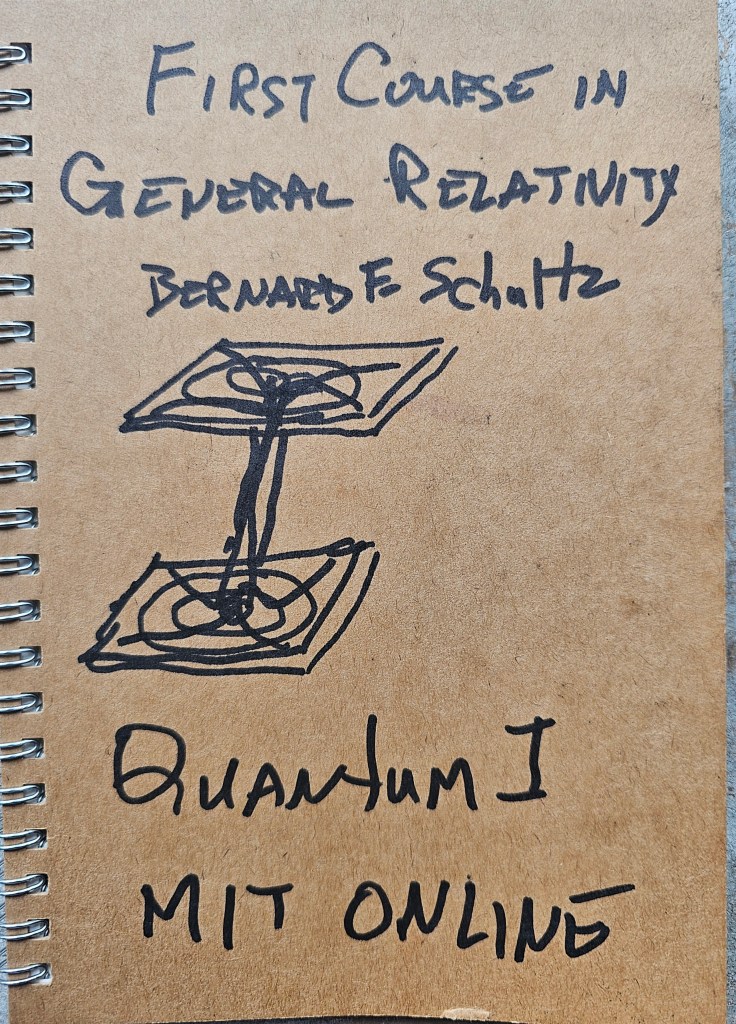 FIRST COURSE IN
GENERAL RELATIVITY
BERNARD F. Schultz
QUANTUM I
MIT ONLINE